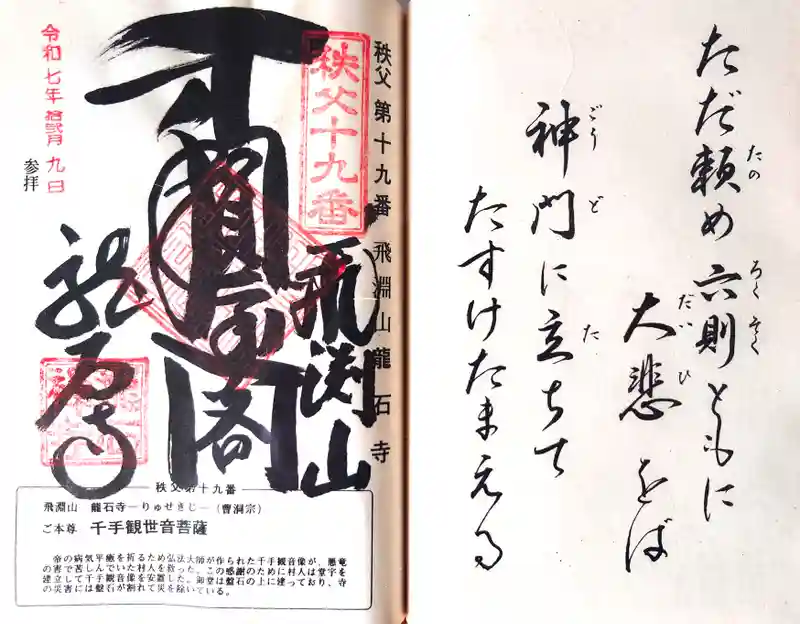 ただ頼め六則ともに
たの
ろくそく
大悲をば
だいひ
神門に立ちて
ごうど
た
たすけたまえる
秩父第十九番 飛淵山龍石寺
秩父十九番
飛渕山
閣
龍石寺
令和七年拾弐月九日
参拝
秩父第十九番
飛淵山 龍石寺―りゅせきじ―(曹洞宗)
ご本尊 千手観世音菩薩
帝の病気平癒を祈るため弘法大師が作られた千手観音像が、悪竜
の害で苦しんでいた村人を救った。この感謝のために村人は堂宇を
建立して千手観音像を安置した。御堂は盤石の上に建っており、寺
の災害には盤石が割れて災を除いている。